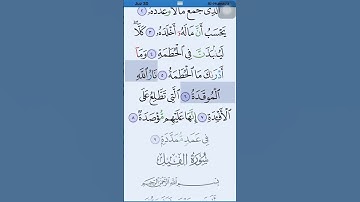 ٱلَّذِى جَمَعَ مَالًا وَعَدَّدَهُۥ ٢
يَحْسَبُ أَنَّ مَالَهُۥٓ أَخْلَدَهُۥ ٣ كَلَّا ۖ
لَيُنۢبَذَنَّ فِى ٱلْحُطَمَةِ ٤ وَمَآ
أَدْرَىٰكَ مَا ٱلْحُطَمَةُ ٥ نَارُ ٱللَّهِ
ٱلْمُوقَدَةُ ٦ ٱلَّتِى تَطَّلِعُ عَلَى
ٱلْأَفْـِٔدَةِ ٧ إِنَّهَا عَلَيْهِم مُّؤْصَدَةٌ ٨
فِى عَمَدٍ مُّمَدَّدَةٍۭ ٩
سُورَةُ ٱلْفِيلِ
بِسْمِ ٱللَّهِ ٱلرَّحْمَٰنِ ٱلرَّحِيمِ